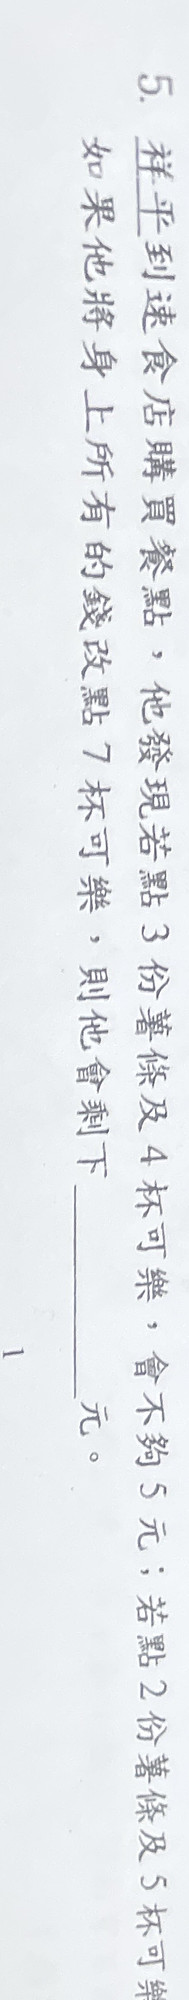 5. 祥平到速食店購買餐點，他發現若點3份薯條及4杯可樂，會不夠5元；若點2份薯條及5杯可樂
如果他將身上所有的錢改點7杯可樂，則他會剩下______元。
1